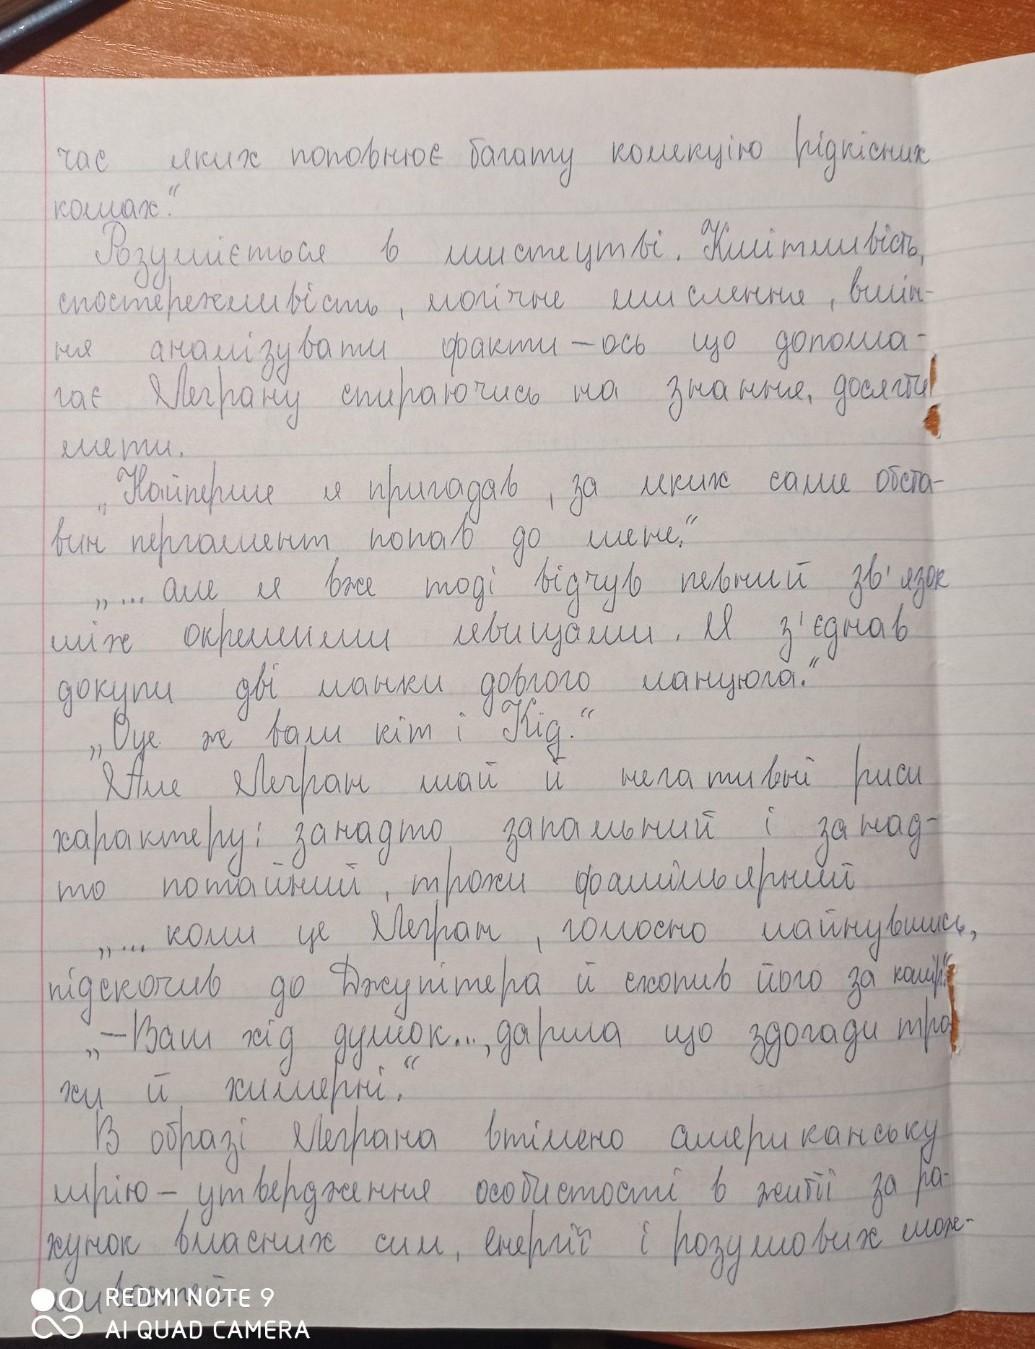 час яких поповнює багату колекцію рідкісних
комах."
Розуміється в мистецтві. Кмітливість,
спостережливість, логічне мислення, вмін-
ня аналізувати факти – ось що допома-
гає Леграну спираючись на знання, досягти
мети.
„Найперше я пригадав, за яких саме обста-
вин пергамент попав до мене."
„... але я вже тоді відчув певний зв'язок
між окремими явищами. Я з'єднав
докупи дві ланки довгого ланцюга."
„Оце же вам кіт і Кід."
Але Легран май й негативні риси
характеру: занадто запальний і занад-
то потайний, трохи фамільярний
„... коли це Легран, голосно лайнувшись,
підскочив до Джупітера й схопив його за комір."
„– Ваш хід думок..., дарма що здогади тро
хи й химерні."
В образі Леграна втілено американську
мрію – утвердження особистості в житті за ра-
хунок власних сил, енергії і розумових мож-
ливостей.
REDMI NOTE 9
AI QUAD CAMERA